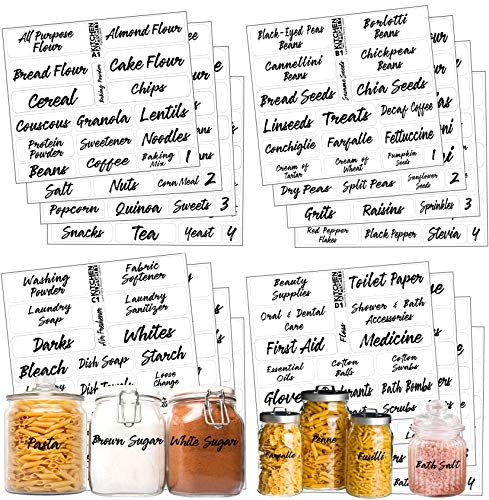 All Purpose
Flour
Almond Flour
Bread Flour
Cake Flour
Cereal
Chips
Baking Powder
KITCHEN
Couscous
Granola
Lentils
Protein
Powder
Sweetener
Noodles
Beans
Coffee
Baking
Mix
1
Salt
Nuts
Corn Meal
2
Popcorn
Quinoa
Sweets
3
Snacks
Tea
Yeast
4
Black-Eyed Peas
Beans
Borlotti
Beans
Cannellini
Beans
Chickpeas
Beans
Bread Seeds
Chia Seeds
Sesame Seeds
KITCHEN
Linseeds
Treats
Decaf Coffee
Conchiglie
Farfalle
Fettuccine
Cream of
Tartar
Cream of
Wheat
Pumpkin
Seeds
1
Dry Peas
Split Peas
Sunflower
Seeds
2
Grits
Raisins
Sprinkles
3
Red Pepper
Flakes
Black Pepper
Stevia
4
Washing
Powder
Fabric
Softener
Laundry
Soap
Laundry
Sanitizer
Darks
Whites
Air Freshener
KITCHEN
Bleach
Dish Soap
Starch
Loose
Change
Pasta
Brown Sugar
White Sugar
Beauty
Supplies
Toilet Paper
Oral & Dental
Care
Shower & Bath
Accessories
First Aid
Medicine
Floss
KITCHEN
Essential
Oils
Cotton
Balls
Cotton
Swabs
Bath Bombs
Scrubs
Farfalle
Penne
Fusilli
Bath Salt